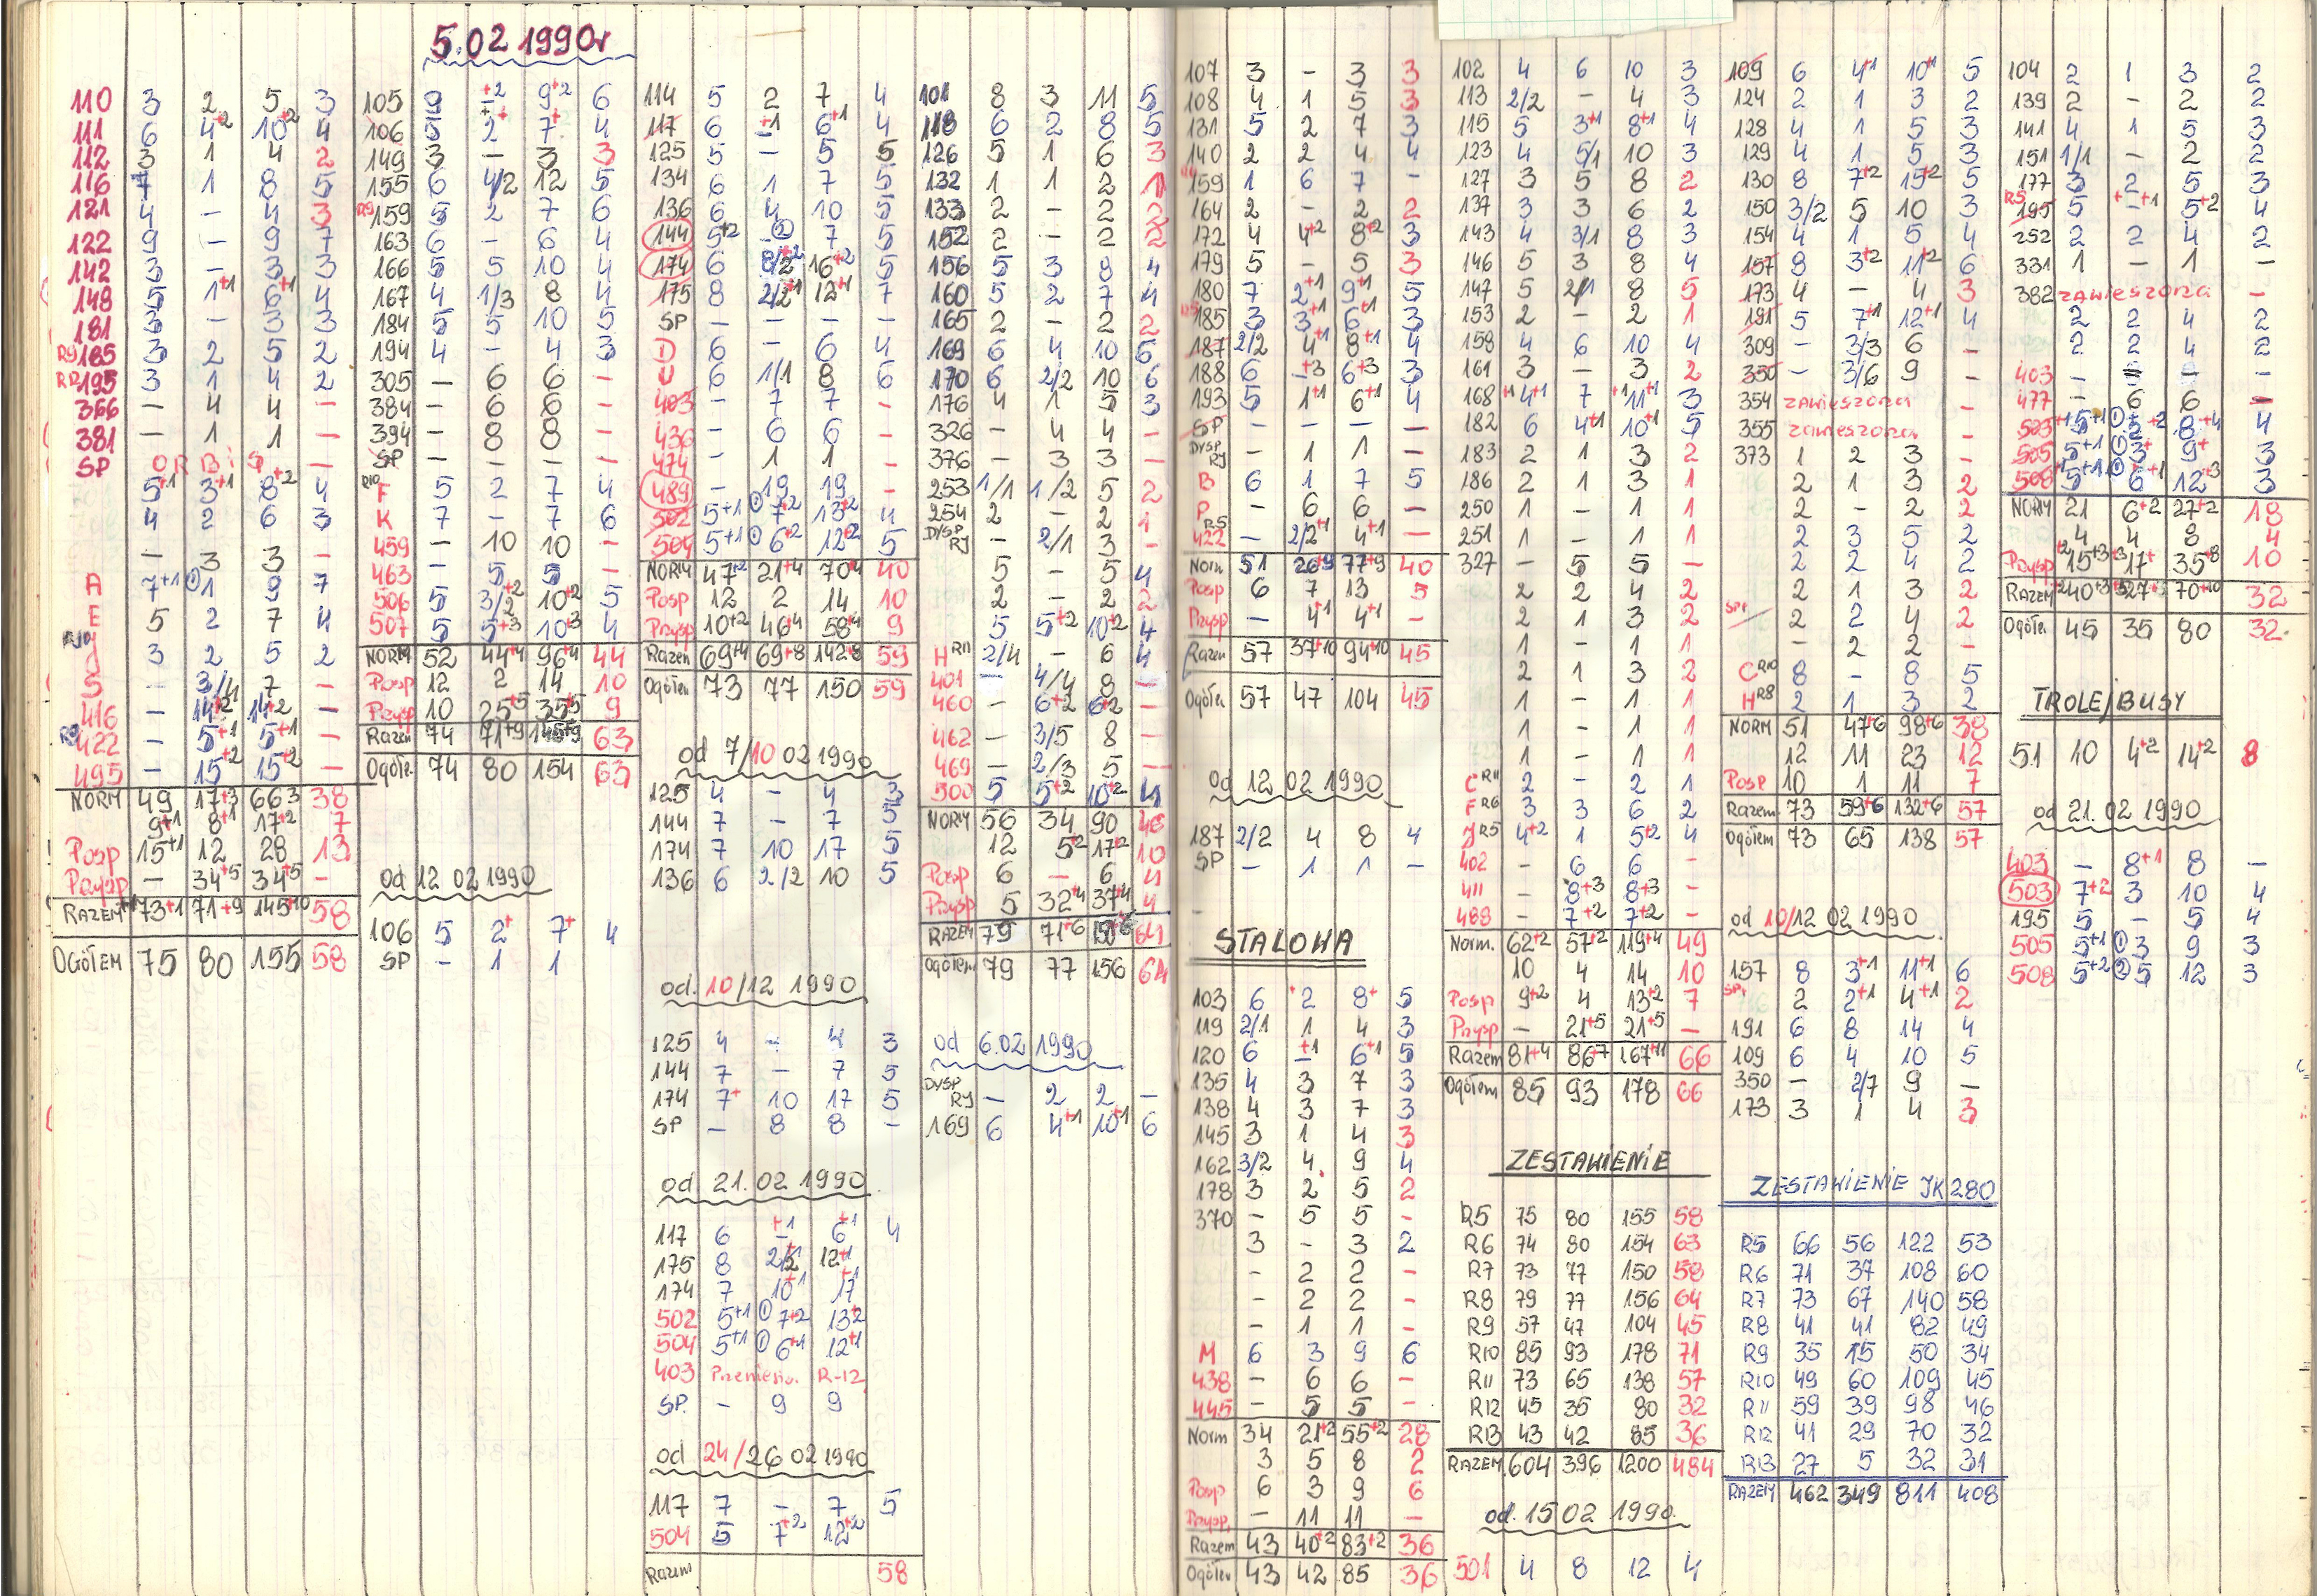 5.02 1990r
110 3 2 5 3
111 6 4+2 10+2 4
112 3 1 4 2
116 7 1 8 5
121 4 - 4 3
122 9 - 9 7
142 3 - 3 3
148 5 1+1 6+1 4
181 3 - 3 3
R9 185 3 2 5 2
R12 195 3 1 4 2
366 - 4 4 -
381 - 1 1 -
SP ORBIS -
5+1 3+1 8+2 4
4 2 6 3
- 3 3 -
A 7+1 ①1 9 7
E 5 2 7 4
3 2 5 2
S - 3/4 7 -
416 - 14+2 14+2 -
R9 422 - 5+1 5+1 -
495 - 15+2 15+2 -
NORM 49 17+3 66 3 38
9+1 8+1 17+2 7
Posp 15+1 12 28 13
Przysp - 34+5 34+5 -
RAZEM 73+1 71+9 145+10 58
OGÓŁEM 75 80 155 58
105 9 +2 9+2 6
106 5 2 7 4
149 3 - 3 3
155 6 4/2 12 5
R9 159 5 2 7 6
163 6 - 6 4
166 5 5 10 4
167 4 1/3 8 4
184 5 5 10 5
194 4 - 4 3
305 - 6 6 -
384 - 6 6 -
394 - 8 8 -
SP - - - -
R10 F 5 2 7 4
K 7 - 7 6
459 - 10 10 -
463 - 5 5 -
506 5 3/2+2 10+2 5
507 5 5+3 10+3 4
NORM 52 44+4 96+4 44
Posp 12 2 14 10
Przysp 10 25+5 35+5 9
Razem 74 71+9 145+9 63
Ogółe. 74 80 154 63
od 12 02 1990
106 5 2+ 7+ 4
SP - 1 1
114 5 2 7 4
117 6 -+1 6+1 4
125 5 - 5 5
134 6 1 7 5
136 6 4 10 5
144 5+2 ② 7 5
174 6 8/2+2 16+2 5
175 8 2/2+1 12+1 7
SP - - - -
D 6 - 6 4
U 6 1/1 8 6
403 - 7 7 -
436 - 6 6 -
474 - 1 1 -
489 - 19 19 -
502 5+1 ①7+2 13+2 4
504 5+1 ①6+2 12+2 5
NORM 47+2 21+4 70+4 40
Posp 12 2 14 10
Przysp 10+2 46+4 58+4 9
Razem 69+4 69+8 142+8 59
Ogółem 73 77 150 59
od 7/10 02 1990
125 4 - 4 3
144 7 - 7 5
174 7 10 17 5
136 6 2/2 10 5
od. 10/12 1990
125 4 - 4 3
144 7 - 7 5
174 7+ 10 17 5
SP - 8 8 -
od 21.02 1990
117 6 -+1 6+1 4
175 8 2/2+1 12+1
174 7 10+1 17+1
502 5+1 ①7+2 13+2
504 5+1 ①6+1 12+1
403 Przenies. R-12
SP. - 9 9
od 24/26 02 1990
117 7 - 7 5
504 5 7+2 12+2
Razem 58
101 8 3 11 5
118 6 2 8 5
126 5 1 6 3
132 1 1 2 1
133 2 - 2 2
152 2 - 2 2
156 5 3 8 4
160 5 2 7 4
165 2 - 2 2
169 6 4 10 6
170 6 2/2 10 6
176 4 1 5 3
326 - 4 4 -
376 - 3 3 -
253 1/1 1/2 5 2
254 2 - 2 1
DYSP RJ - 2/1 3 -
5 - 5 4
2 - 2 2
5 5+2 10+2 4
H R11 2/4 - 6 4
401 - 4/4 8 -
460 - 6+2 6+2 -
462 - 3/5 8 -
469 - 2/3 5 -
500 5 5+2 10+2 4
NORM 56 34 90 46
12 5+2 17+2 10
Posp 6 - 6 4
Przysp 5 32+4 37+4 4
RAZEM 79 71+6 150+6 64
Ogółem 79 77 156 64
od 6.02 1990
DYSP RJ - 2 2 -
169 6 4+1 10+1 6
107 3 - 3 3
108 4 1 5 3
131 5 2 7 3
140 2 2 4 4
159 1 6 7 -
164 2 - 2 2
172 4 4+2 8+2 3
179 5 - 5 3
180 7 2+1 9+1 5
R5 185 3 3+1 6+1 3
187 2/2 4+1 8+1 4
188 6 -+3 6+3 3
193 5 1+1 6+1 4
SP - - - -
DYSP RJ - 1 1 -
B 6 1 7 5
P - 6 6 -
R5 422 - 2/2+1 4+1 -
Norm 51 26+9 77+9 40
Posp 6 7 13 5
Przysp - 4+1 4+1 -
Razem 57 37+10 94+10 45
Ogółem 57 47 104 45
od 12 02 1990
187 2/2 4 8 4
SP - 1 1 -
STALOWA
103 6 +2 8+ 5
119 2/1 1 4 3
120 6 -+1 6+1 5
135 4 3 7 3
138 4 3 7 3
145 3 1 4 3
162 3/2 4 9 4
178 3 2 5 2
370 - 5 5 -
3 - 3 2
- 2 2 -
- 2 2 -
- 1 1 -
M 6 3 9 6
438 - 6 6 -
445 - 5 5 -
Norm 34 21+2 55+2 28
3 5 8 2
Posp 6 3 9 6
Przysp. - 11 11 -
Razem 43 40+2 83+2 36
Ogółem 43 42 85 36
102 4 6 10 3
113 2/2 - 4 3
115 5 3+1 8+1 4
123 4 5/1 10 3
127 3 5 8 2
137 3 3 6 2
143 4 3/1 8 3
146 5 3 8 4
147 5 2/1 8 5
153 2 - 2 1
158 4 6 10 4
161 3 - 3 2
168 +1 4+1 7 +1 11+1 3
182 6 4+1 10+1 5
183 2 1 3 2
186 2 1 3 1
250 1 - 1 1
251 1 - 1 1
327 - 5 5 -
2 2 4 2
2 1 3 2
1 - 1 1
2 1 3 2
1 - 1 1
1 - 1 1
1 - 1 1
C R11 2 - 2 1
F R6 3 3 6 2
J R5 4+2 1 5+2 4
402 - 6 6 -
411 - 8+3 8+3 -
488 - 7+2 7+2 -
Norm. 62+2 57+2 119+4 49
10 4 14 10
Posp 9+2 4 13+2 7
Przysp - 21+5 21+5 -
Razem 81+4 86+7 167+11 66
Ogółem 85 93 178 66
ZESTAWIENIE
R5 75 80 155 58
R6 74 80 154 63
R7 73 77 150 58
R8 79 77 156 64
R9 57 47 104 45
R10 85 93 178 71
R11 73 65 138 57
R12 45 35 80 32
R13 43 42 85 36
RAZEM 604 396 1200 484
od. 15 02 1990.
501 4 8 12 4
109 6 4+1 10+1 5
124 2 1 3 2
128 4 1 5 3
129 4 1 5 3
130 8 7+2 15+2 5
150 3/2 5 10 3
154 4 1 5 4
157 8 3+2 11+2 6
173 4 - 4 3
191 5 7+1 12+1 4
309 - 3/3 6 -
350 - 3/6 9 -
354 zawieszona -
355 zawieszona -
373 1 2 3 -
2 1 3 2
2 - 2 2
2 3 5 2
2 2 4 2
2 1 3 2
SP+ 2 2 4 2
- 2 2 -
C R10 8 - 8 5
H R8 2 1 3 2
NORM 51 47+6 98+6 38
12 11 23 12
Posp 10 1 11 7
Razem 73 59+6 132+6 57
Ogółem 73 65 138 57
od 10/12 02 1990
157 8 3+1 11+1 6
SP+ 2 2+1 4+1 2
191 6 8 14 4
109 6 4 10 5
350 - 2/7 9 -
173 3 1 4 3
ZESTAWIENIE JK 280
R5 66 56 122 53
R6 71 37 108 60
R7 73 67 140 58
R8 41 41 82 49
R9 35 15 50 34
R10 49 60 109 45
R11 59 39 98 46
R12 41 29 70 32
R13 27 5 32 31
RAZEM 462 349 811 408
104 2 1 3 2
139 2 - 2 2
141 4 1 5 3
151 1/1 - 2 2
177 3 2 5 3
R5 195 5 -+1 5+2 4
252 2 2 4 2
331 1 - 1 -
382 zawieszona -
2 2 4 2
2 2 4 2
403 - - - -
477 - 6 6 -
503 5+1 ① +2 8+4 4
505 5+1 ①3 9+ 3
508 5+1 ①6+1 12+3 3
NORM 21 6+2 27+2 18
4 4 8 4
Przysp 15+3 17+ 35+8 10
RAZEM 40+3 27 70+10 32
Ogółe. 45 35 80 32
TROLEJBUSY
51 10 4+2 14+2 8
od 21.02 1990
403 - 8+1 8 -
503 7+2 3 10 4
195 5 - 5 4
505 5+1 ①3 9 3
508 5+2 ②5 12 3